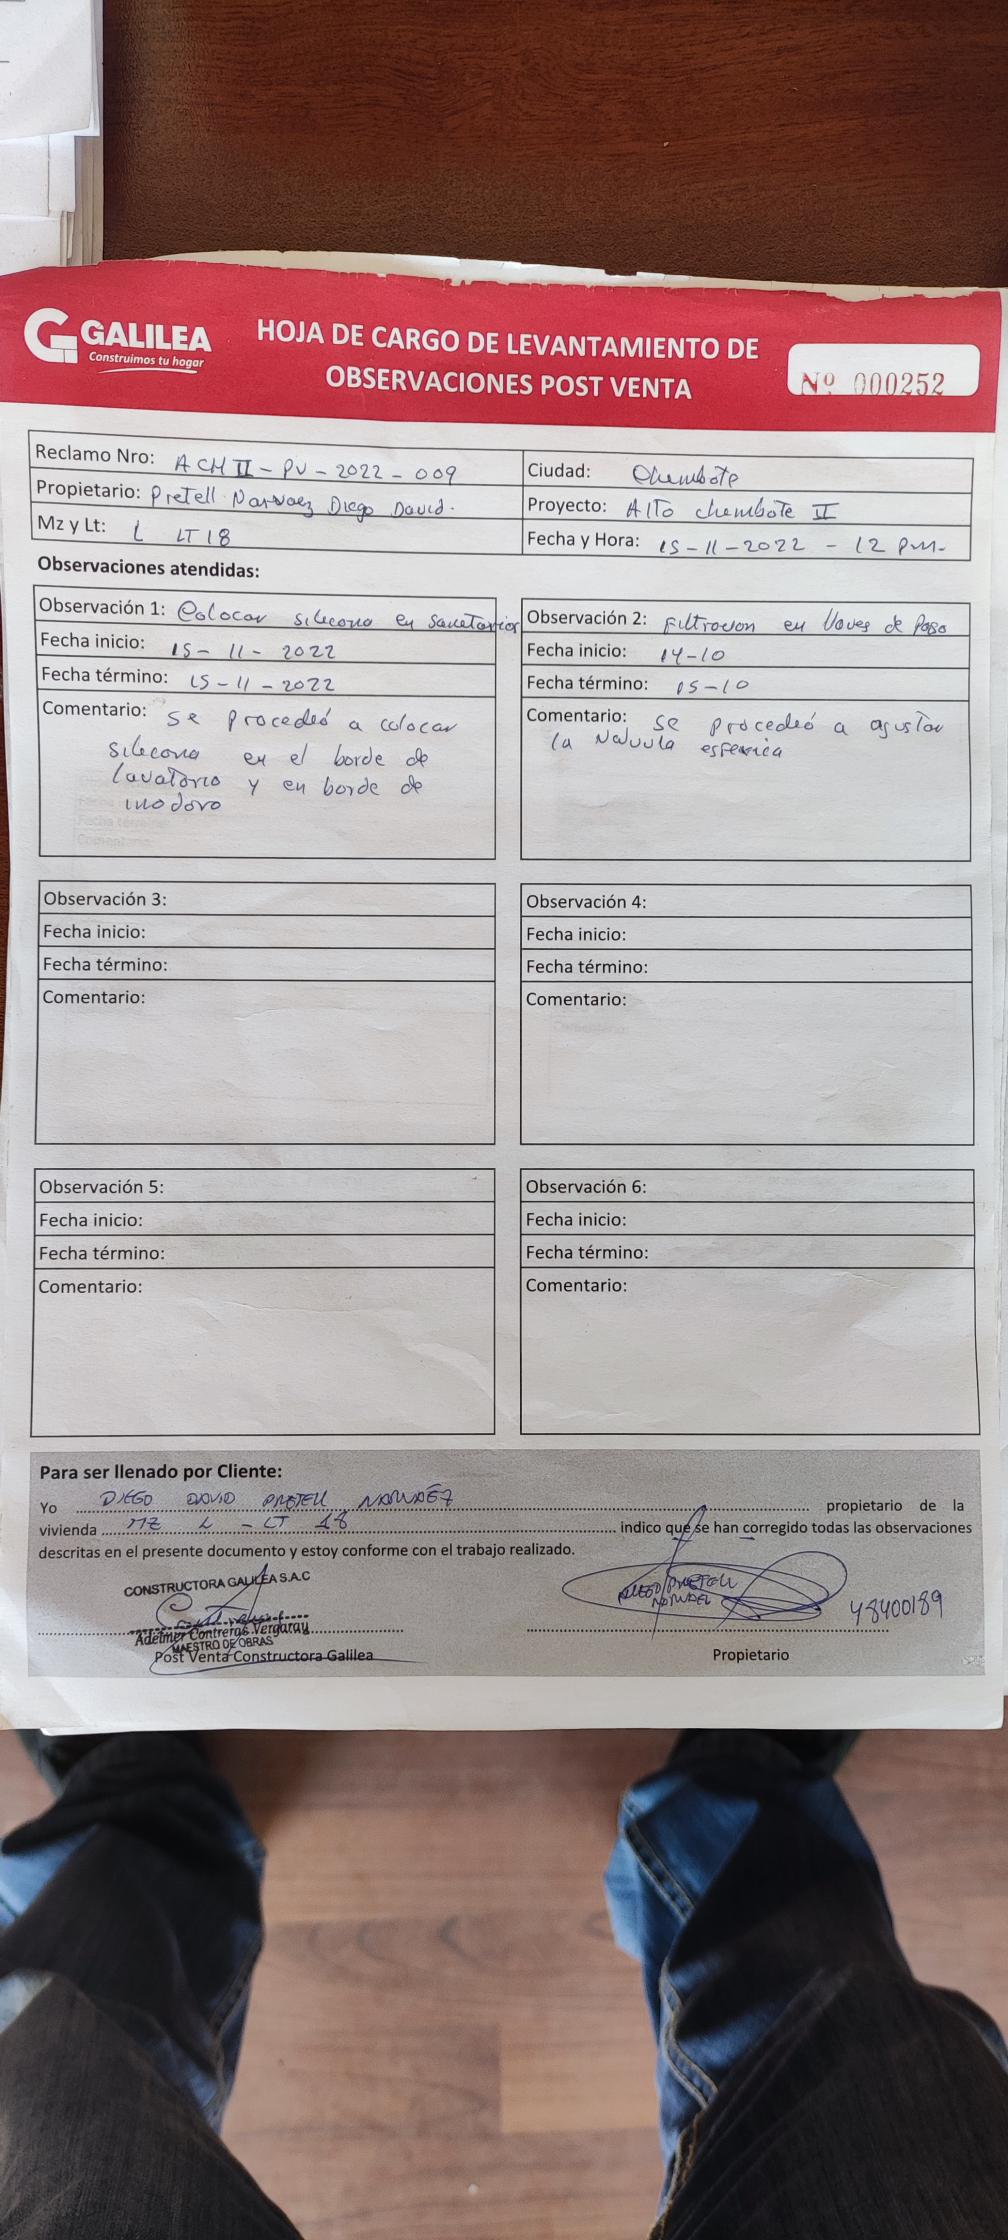 GALILEA
Construimos tu hogar
HOJA DE CARGO DE LEVANTAMIENTO DE
OBSERVACIONES POST VENTA
Nº 000252
Reclamo Nro: ACH II - PV - 2022 - 009
Ciudad: Chembote
Propietario: Pretell Narvaez Diego David.
Proyecto: Alto chembote II
Mz y Lt: L LT 18
Fecha y Hora: 15-11-2022 - 12 P.M.
Observaciones atendidas:
Observación 1: Colocar silecona en sanetarios
Fecha inicio: 15-11-2022
Fecha término: 15-11-2022
Comentario: se procedeó a colocar
silecona en el borde de
lavatorio y en borde de
inodoro
Observación 2: Filtracion en llaves de Paso
Fecha inicio: 14-10
Fecha término: 15-10
Comentario: se procedeó a agustar
la valvula esferica
Observación 3:
Fecha inicio:
Fecha término:
Comentario:
Observación 4:
Fecha inicio:
Fecha término:
Comentario:
Observación 5:
Fecha inicio:
Fecha término:
Comentario:
Observación 6:
Fecha inicio:
Fecha término:
Comentario:
Para ser llenado por Cliente:
Yo DIEGO DAVID PRETELL NARVAÉZ propietario de la
vivienda MZ L - LT 18 indico que se han corregido todas las observaciones
descritas en el presente documento y estoy conforme con el trabajo realizado.
CONSTRUCTORA GALILEA S.A.C
Adelmer Contreras Vergaray
MAESTRO DE OBRAS
Post Venta Constructora Galilea
DIEGO PRETELL
NARVAEZ
48400189
Propietario